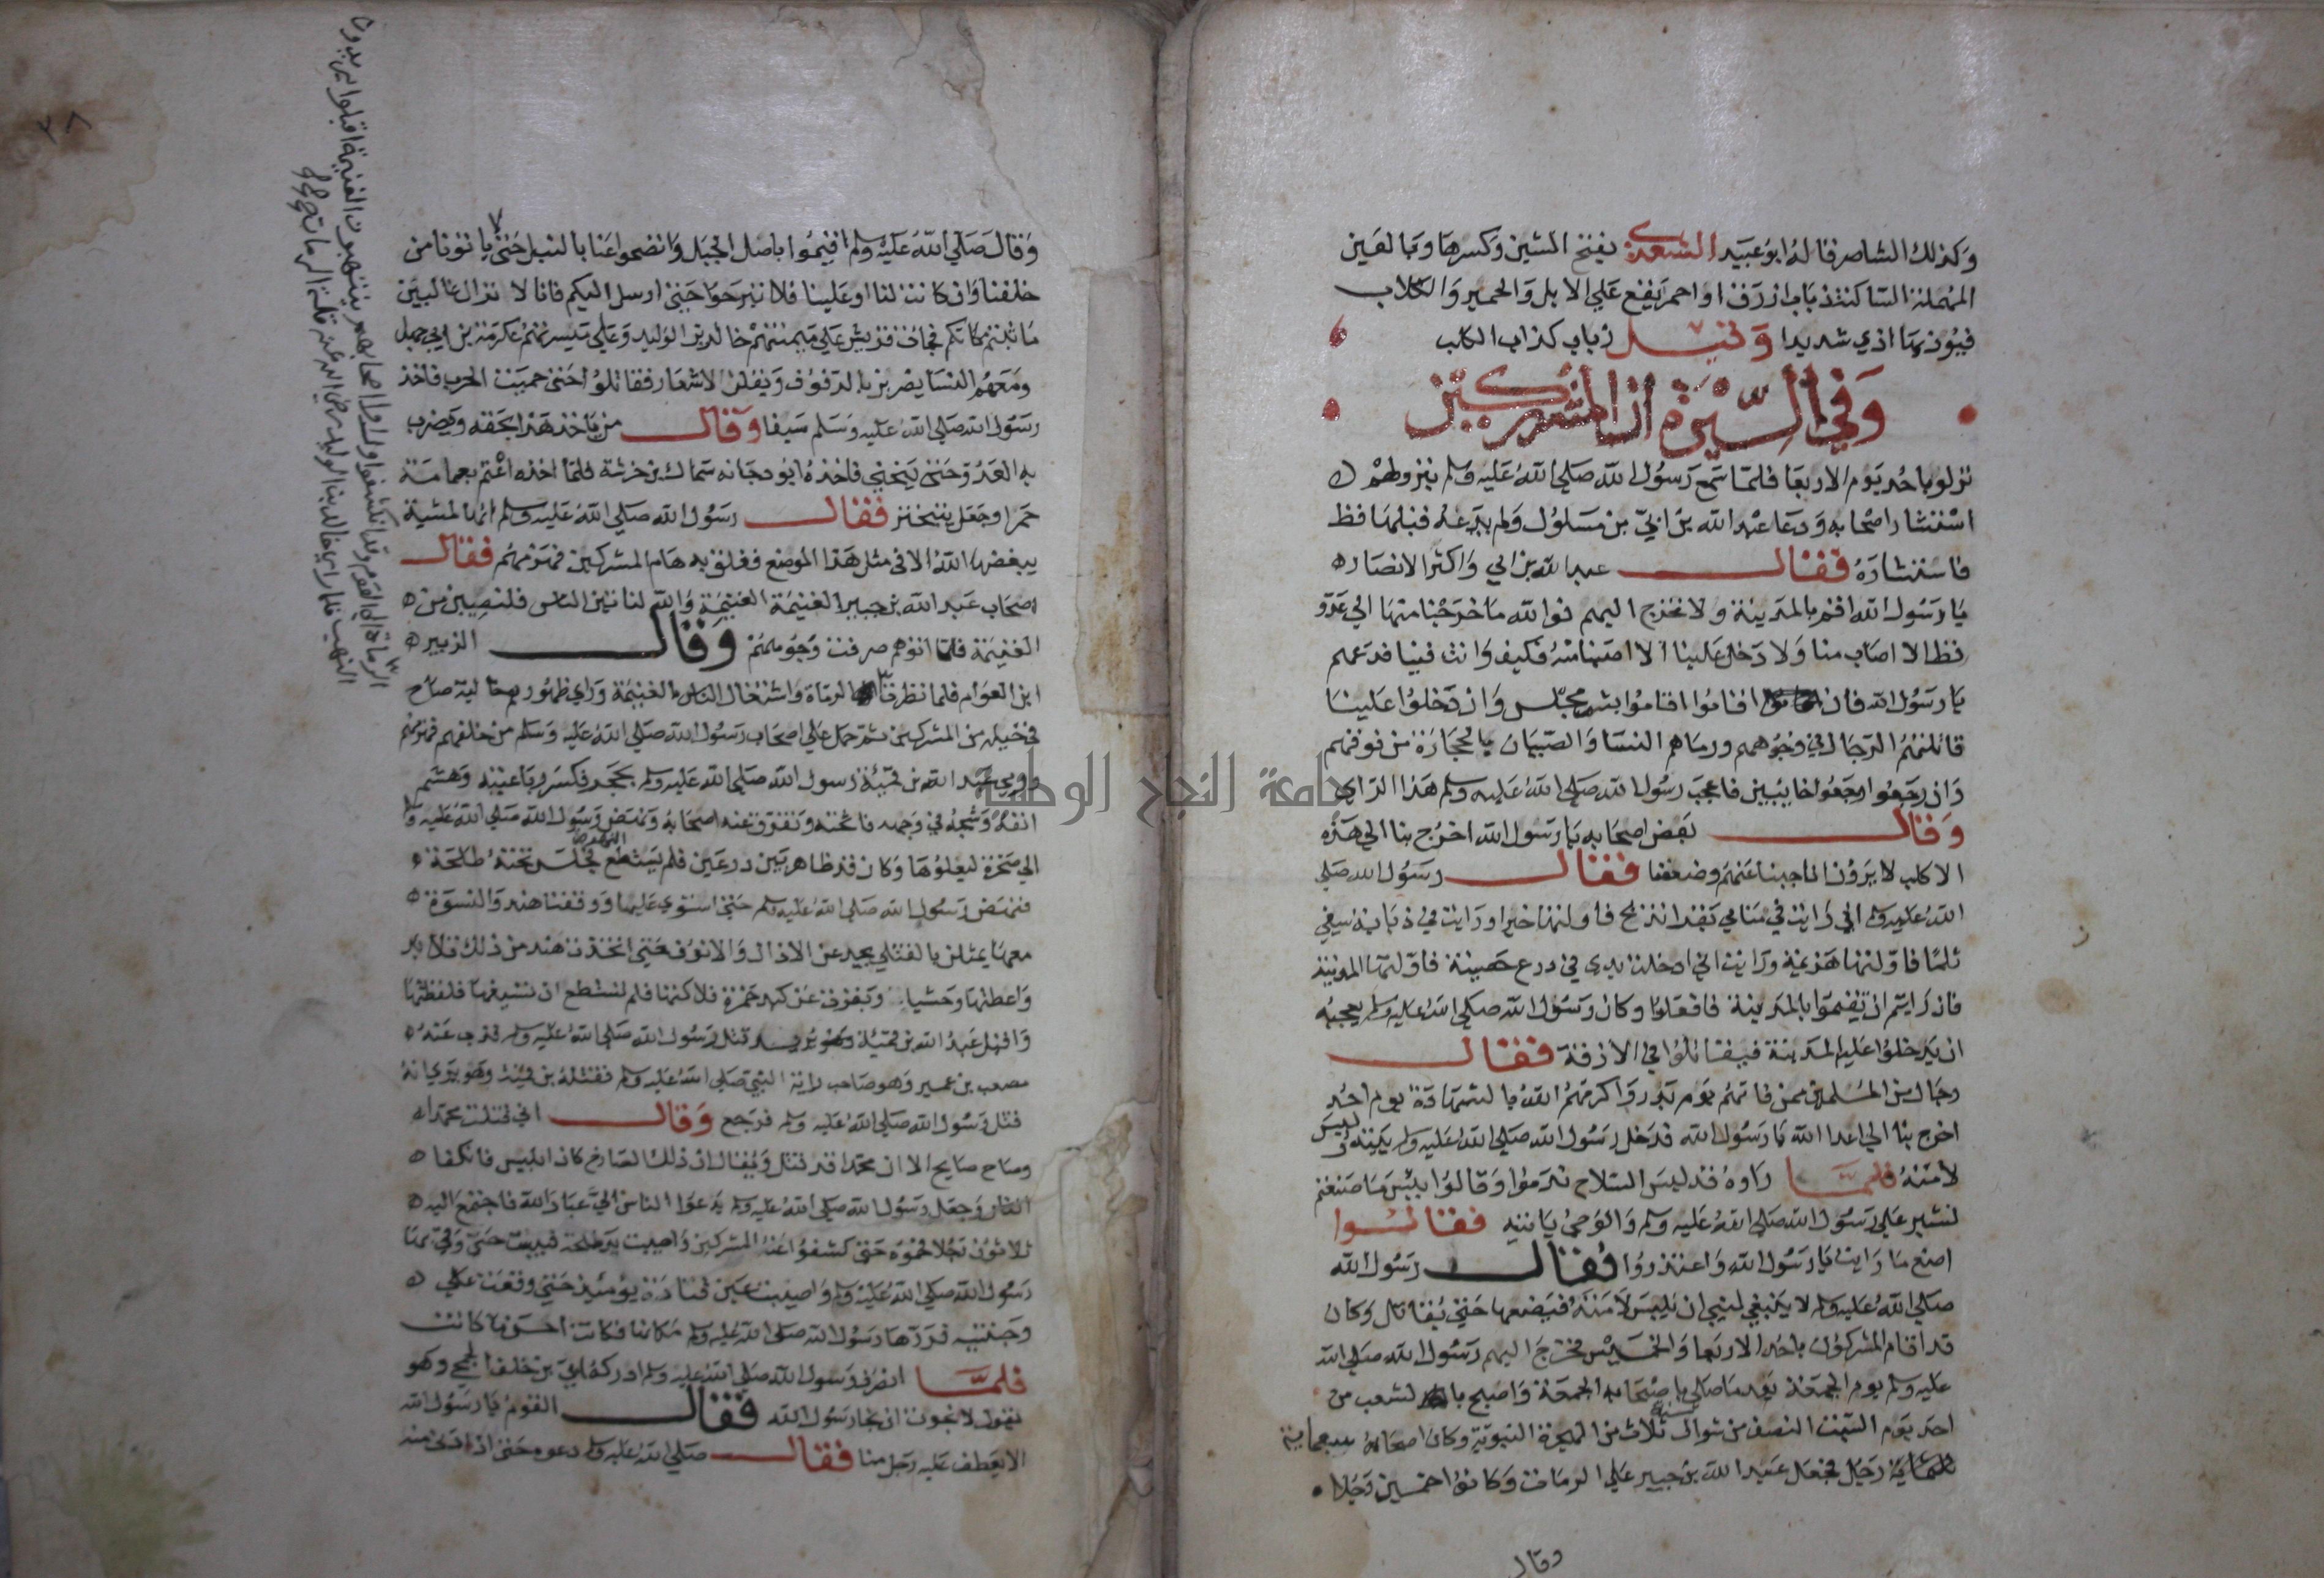 وكذلك الشاصر قاله ابو عبيد الشعرى بفتح الشين وكسرها وبالعين
المهملة الساكنة ذباب ازرق او احمر يقع على الابل والحمير والكلاب
فيوذيها اذي شديدا وقيل ذباب كذباب الكلب
وفي السيرة ان المشركين
نزلوا باحد يوم الاربعا فلما سمع رسول الله صلي الله عليه وسلم بنزولهم
استشار اصحابه ودعا عبد الله بن ابيّ بن سلول ولم يدعه قبلها قط
فاستشاره فقال عبد الله بن ابي واكثر الانصار
يا رسول الله اقم بالمدينة ولا تخرج اليهم فوالله ما خرجنا منها الي عدو
قط الا اصاب منا ولا دخل علينا الا اصبنا منه فكيف وانت فينا فدعهم
يا رسول الله فان اقاموا اقاموا بشر مجلس وان دخلوا علينا
قاتلتهم الرجال في وجوههم ورماهم النسا والصبيان بالحجارة من فوقهم
وان رجعوا رجعوا خايبين فاعجب رسول الله صلي الله عليه وسلم هذا الراي
وقال بعض اصحابه يا رسول الله اخرج بنا الي هذه
الاكلب لا يرون انا جبنا عنهم وضعفنا فقال رسول الله صلي
الله عليه وسلم اني رايت في منامي بقرا تذبح فاولتها خيرا ورايت في ذبابة سيفي
ثلما فاولتها هزيمة ورايت اني ادخلت يدي في درع حصينة فاولتها المدينة
فان رايتم ان تقيموا بالمدينة فافعلوا وكان رسول الله صلي الله عليه وسلم يعجبه
ان يدخلوا عليه المدينة فيقاتلوا في الازقة فقال
رجال من المسلمين ممن فاتهم يوم بدر واكرمهم الله بالشهادة يوم احد
اخرج بنا الي اعدا الله يا رسول الله فدخل رسول الله صلي الله عليه وسلم بيته ولبس
لامته فلما راوه قد لبس السلاح ندموا وقالوا بئس ما صنعتم
نشير على رسول الله صلي الله عليه وسلم والوحي ياتيه فقالوا
اصنع ما رايت يا رسول الله واعتذروا فقال رسول الله
صلي الله عليه وسلم لا ينبغي لنبي ان يلبس لامته فيضعها حتي يقاتل وكان
قد اقام المشركون باحد الاربعا والخميس فخرج اليهم رسول الله صلي الله
عليه وسلم يوم الجمعة بعد ما صلي باصحابه الجمعة واصبح بالشعب من
احد يوم السبت النصف من شوال سنة ثلاث من الهجرة النبوية وكان اصحابه سبعماية
رجل فجعل عبد الله بن جبير علي الرماة وكانوا خمسين رجلا
وقال
٣٨
وقال صلي الله عليه وسلم اقيموا باصل الجبل وانضحوا عنا بالنبل حتي لا ياتونا من
خلفنا وان كانت لنا او علينا فلا تبرحوا حتي ارسل اليكم فانا لا نزال غالبين
ما ثبتم مكانكم فجات قريش علي ميمنتهم خالد بن الوليد وعلي ميسرتهم عكرمة بن ابي جهل
ومعهم النسا يضربن بالدفوف ويقلن الاشعار فقاتلوا حتي حميت الحرب فاخذ
رسول الله صلي الله عليه وسلم سيفا وقال من ياخذ هذا بحقه ويضرب
به العدو حتي ينحني فاخذه ابو دجانه سماك بن خرشة فلما اخذه اعتم بعمامة
حمرا وجعل يتبختر فقال رسول الله صلي الله عليه وسلم انها لمشية
يبغضها الله الا في مثل هذا الموضع ففلق به هام المشركين فهزمهم فقال
اصحاب عبد الله بن جبير الغنيمة الغنيمة والله لناتين الناس فلنصيبن من
الغنيمة فلما اتوهم صرفت وجوههم وقال الزبير
ابن العوام فلما نظرت الرماة واشتغال الناس بالغنيمة وراي ظهورهم خالية صاح
في خيله من المشركين ثم حمل علي اصحاب رسول الله صلي الله عليه وسلم من خلفهم فهزمهم
ورمي عبد الله بن قميئة رسول الله صلي الله عليه وسلم بحجر فكسر رباعيته وهشم
انفه وشجه في وجهه فاثخنه وتفرق عنه اصحابه ونهض رسول الله صلي الله عليه وسلم
الي صخرة ليعلوها وكان قد ظاهر بين درعين فلم يستطع النهوض فجلس تحته طلحة
فنهض رسول الله صلي الله عليه وسلم حتي استوي عليها ووقفت هند والنسوة
معها يمثلن بالقتلي يجدعن الاذان والانوف حتي اتخذت هند من ذلك قلايد
واعطتها وحشيا وبقرت عن كبد حمزة فلاكتها فلم تستطع ان تسيغها فلفظتها
واقبل عبد الله بن قميئة وهو يريد قتل رسول الله صلي الله عليه وسلم فذب عنه
مصعب بن عمير وهو صاحب راية النبي صلي الله عليه وسلم فقتله بن قميئة وهو يري انه
قتل رسول الله صلي الله عليه وسلم فرجع وقال اني قتلت محمدا
وصاح صايح الا ان محمدا قد قتل ويقال ان ذلك الصارخ كان ابليس فانكفا
الناس وجعل رسول الله صلي الله عليه وسلم يدعوا الناس اليّ عباد الله فاجتمع اليه
ثلاثون رجلا فحموه حتي كشفوا عنه المشركين واصيبت يد طلحة فيبست حين وقي بها
رسول الله صلي الله عليه وسلم واصيبت عين قتادة يومئذ حتي وقعت علي
وجنته فردها رسول الله صلي الله عليه وسلم مكانها فكانت احسن ما كانت
فلما انصرف رسول الله صلي الله عليه وسلم ادركه ابي بن خلف الجمحي وهو
يقول لا نجوت ان نجا رسول الله فقال القوم يا رسول الله
الا يعطف عليه رجل منا فقال صلي الله عليه وسلم دعوه حتي اذا دني منه
الرماة الي القوم وقد انكشفوا وراوا اصحابهم ينتهبون الغنيمة اقبلوا يريدون
النهب فلما راي خالد بن الوليد رضي الله عنه قلة الرماة